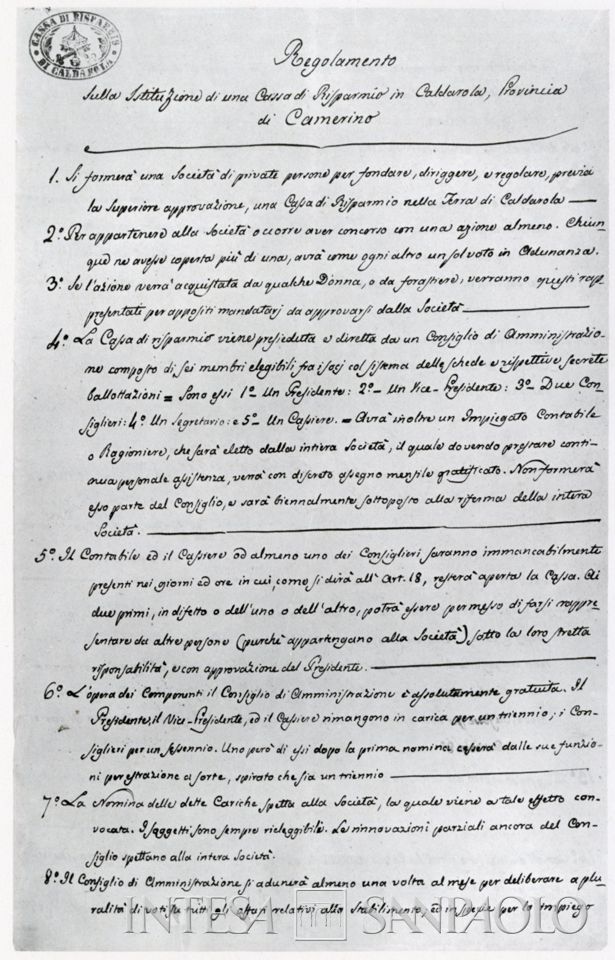 CASSA DI RISPARMIO
DI CALDAROLA
Regolamento
sulla Istituzione di una Cassa di Risparmio in Caldarola, Provincia
di Camerino
1. Si formerà una Società di private persone per fondare, diriggere, e regolare, previa
la superiore approvazione, una Cassa di Risparmio nella Terra di Caldarola
2.º Per appartenere alla Società occorre aver concorso con una azione almeno. Chiun-
que ne avesse coperta più di una, avrà come ogni altro un sol voto in Adunanza.
3.º Se l'azione verrà acquistata da qualche Donna, o da forastiere, verranno questi rap-
presentati per appositi mandatarj da approvarsi dalla Società
4.º La Cassa di risparmio viene presieduta e diretta da un Consiglio di Amministrazio-
ne composto di sei membri elegibili fra i socj col sistema delle schede e rispettive secrete
ballottazioni = Sono essi 1º Un Presidente: 2º Un Vice-Presidente: 3º Due Con-
siglieri: 4º Un Segretario: e 5º Un Cassiere. = Avrà inoltre un Impiegato Contabile
o Ragioniere, che sarà eletto dalla intiera Società, il quale dovendo prestare conti-
nua personale assistenza, verrà con discreto assegno mensile gratificato. Non formerà
esso parte del Consiglio, e sarà biennalmente sottoposto alla riferma della intera
Società.
5.º Il Contabile ed il Cassiere ed almeno uno dei Consiglieri saranno immancabilmente
presenti nei giorni ed ore in cui, come si dirà all' Art. 18, resterà aperta la Cassa. Ai
due primi, in difetto o dell'uno o dell'altro, potrà essere permesso di farsi rappre-
sentare da altre persone (purchè appartengano alla Società) sotto la loro stretta
risponsabilità, e con approvazione del Presidente.
6.º L'opera dei Componenti il Consiglio di Amministrazione è assolutamente gratuita. Il
Presidente, il Vice-Presidente, ed il Cassiere rimangono in carica per un triennio; i Con-
siglieri per un sessennio. Uno però di essi dopo la prima nomina cesserà dalle sue funzio-
ni per estrazione a sorte, spirato che sia un triennio
7.º La Nomina delle dette Cariche spetta alla Società, la quale viene a tale effetto con-
vocata. I soggetti sono sempre rieleggibili. Le rinnovazioni parziali ancora del Con-
siglio spettano alla intera Società.
8.º Il Consiglio di Amministrazione si adunerà almeno una volta al mese per deliberare a plu-
ralità di voti su tutti gli affari relativi allo Stabilimento, ed in specie per lo impiego
INTESA SANPAOLO